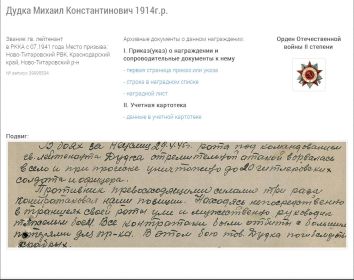 Дудка Михаил Константинович 1914г.р.
Звание: гв. лейтенант
в РККА с 07.1941 года Место призыва:
Ново-Титаровский РВК, Краснодарский
край, Ново-Титаровский р-н
№ записи:
Архивные документы о данном награждении:
I. Приказ(указ) о награждении и
сопроводительные документы к нему
- первая страница приказ или указа
- строка в наградном списке
- наградной лист
II. Учетная картотека
- данные в учетной картотеке
Орден Отечественной
войны II степени
Подвиг:
В боях за 45г. рота под командованием
гв. лейтенанта Дудка стремительной атакой ворвалась
в село и при прочесе уничтожено до 20 гитлеровских
солдат и офицера.
Противник превосходящими силами три раза
контратаковал нашу позицию. Находясь непосредственно
в траншеях своей роты умело и мужественно руководил
боем. Все контратаки были отбиты с большими
потерями для пр-ка. В этом бою тов. Дудка погиб смертью
храбрых.